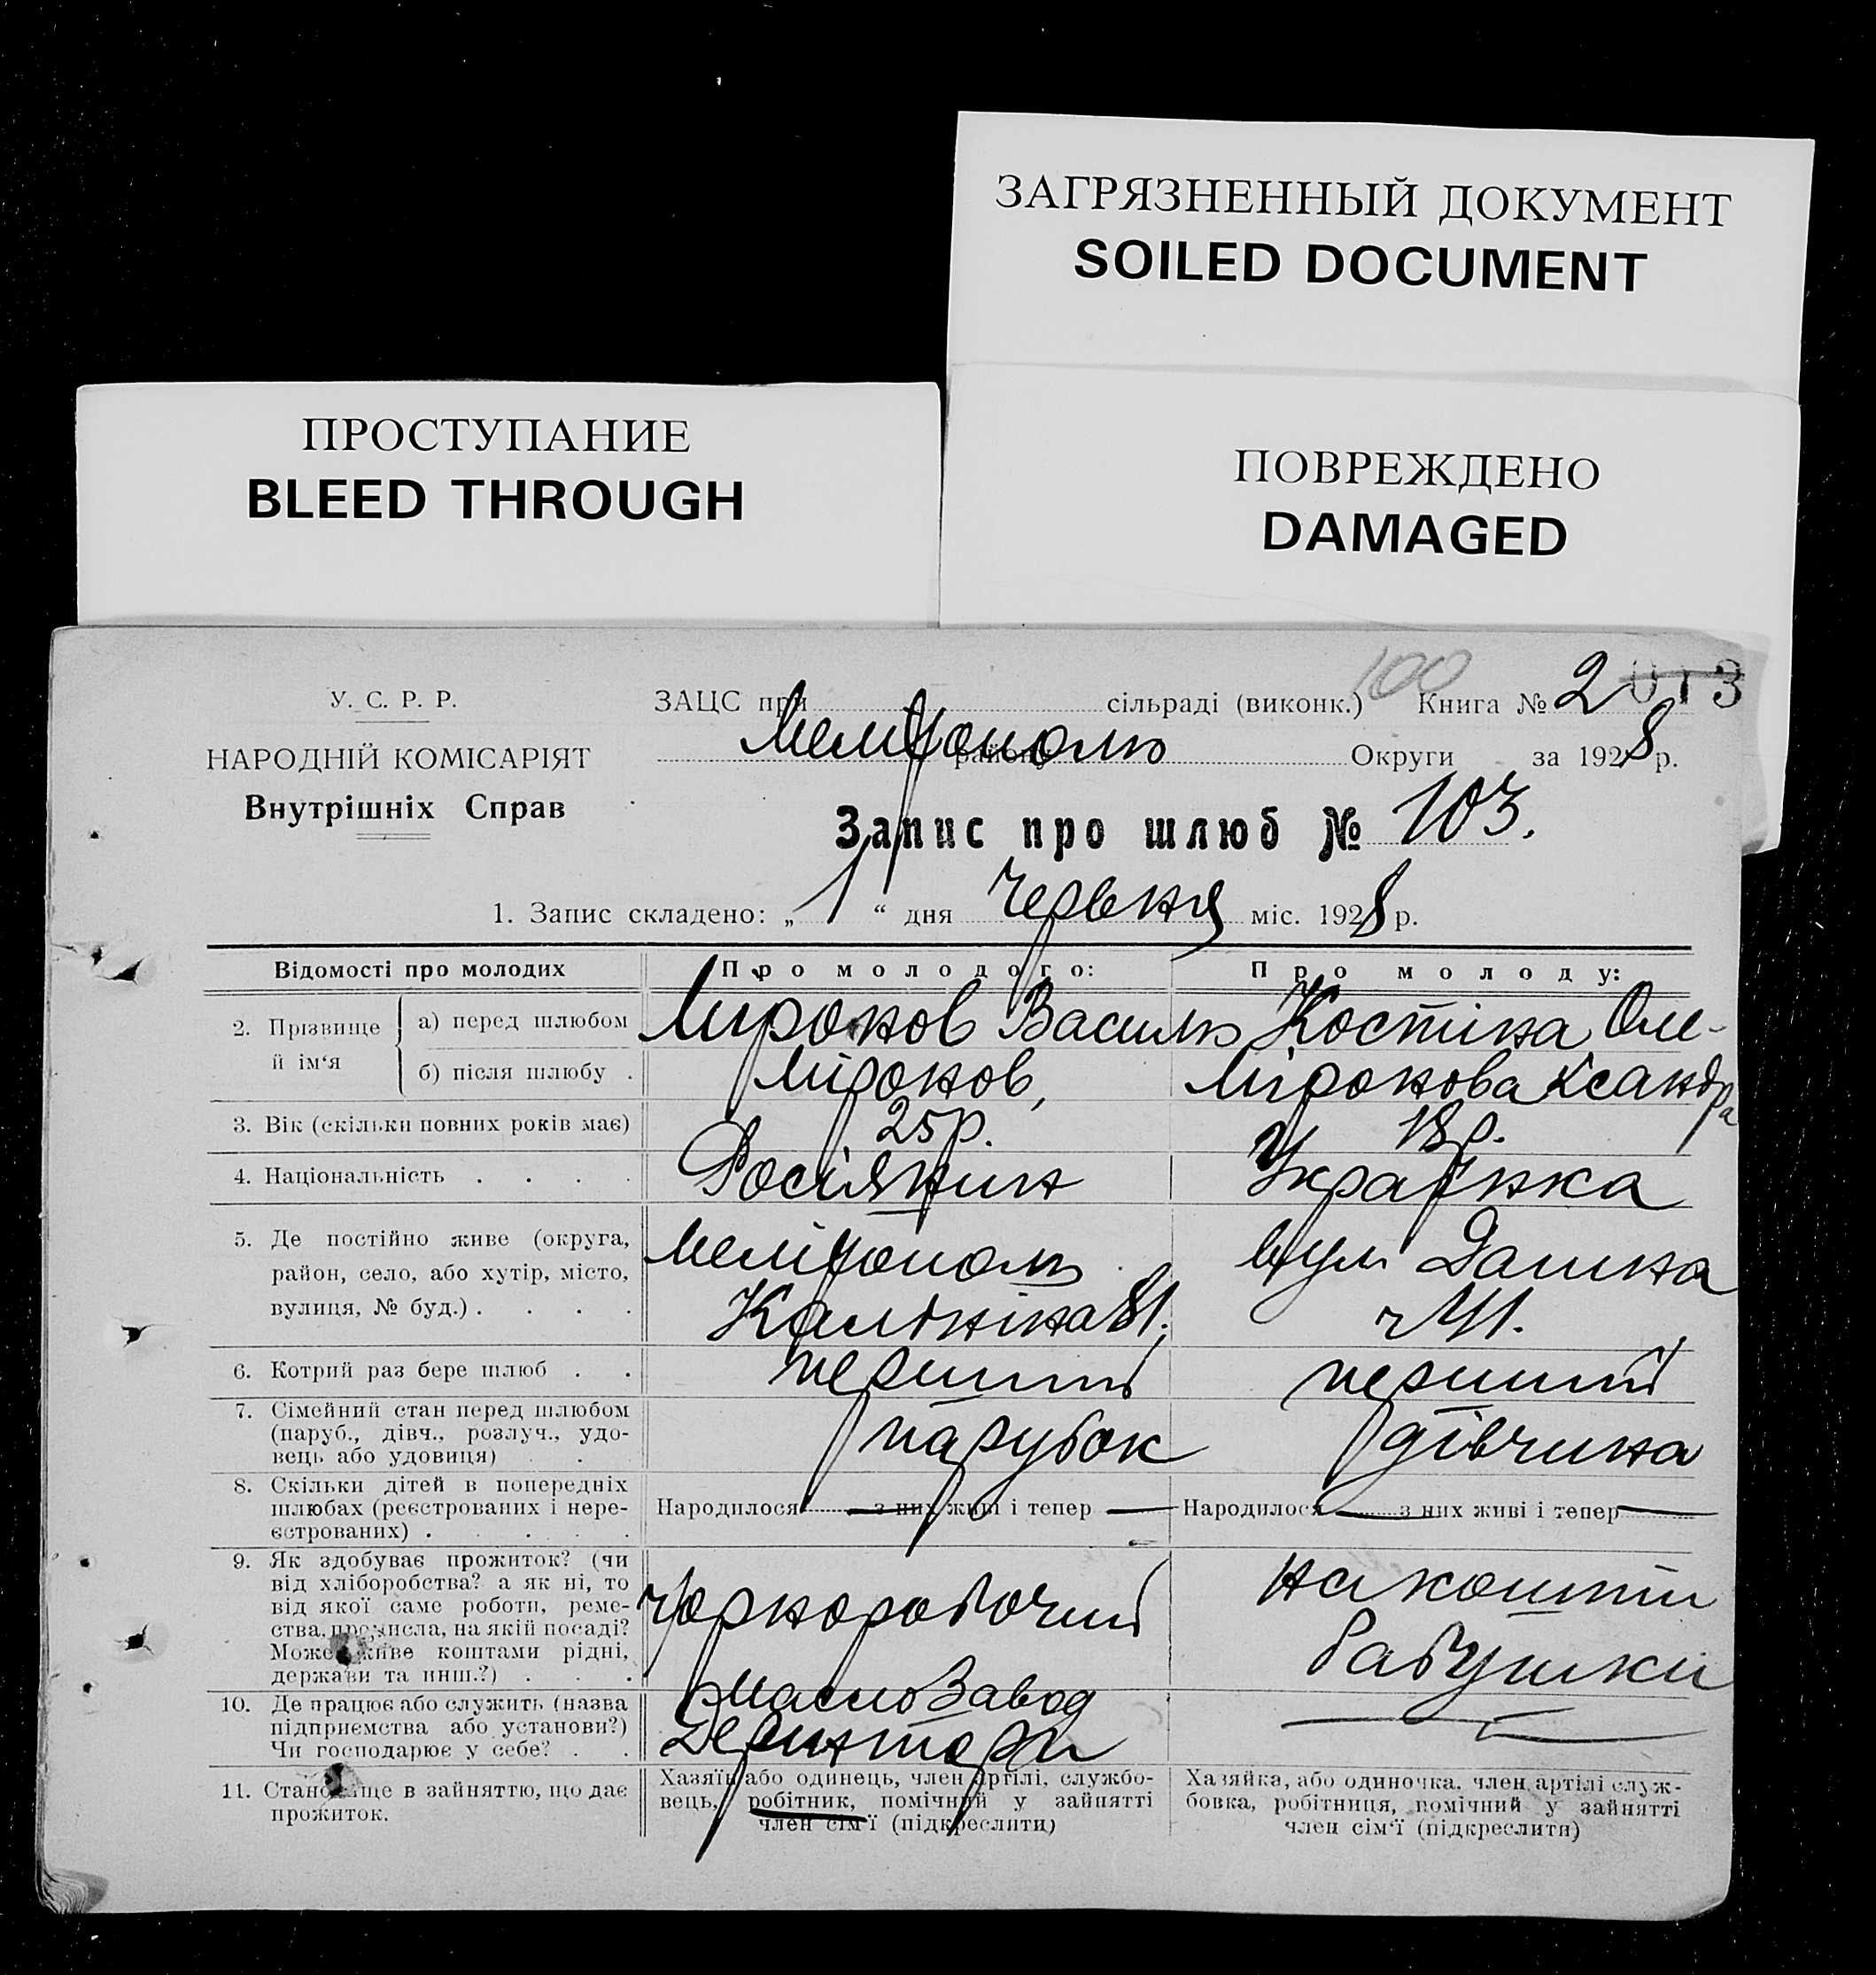 ЗАГРЯЗНЕННЫЙ ДОКУМЕНТ
SOILED DOCUMENT
ПРОСТУПАНИЕ
BLEED THROUGH
ПОВРЕЖДЕНО
DAMAGED
100
У. С. Р. Р.
НАРОДНІЙ КОМІСАРІЯТ
Внутрішніх Справ
ЗАЦС при сільраді (виконк.) Книга № 2 013
Мелітополь району Округи за 1928 р.
Запис про шлюб № 103.
1. Запис складено: „ 1 “ дня Червня міс. 1928 р.
Відомості про молодих Про молодого: Про молоду:
2. Прізвище й ім‘я
а) перед шлюбом Міронов Василь Костіна Оле-
б) після шлюбу . Міронов,Міронова ксандра
3. Вік (скільки повних років має) 25 р. 18 р.
4. Національність . . . . Росіянин Українка
5. Де постійно живе (округа,
район, село, або хутір, місто,
вулиця, № буд.) . . . .
Мелітополь
Калініна 81.
вул.
6. Котрий раз бере шлюб . . перший перший
7. Сімейний стан перед шлюбом
(паруб., дівч., розлуч., удо-
вець або удовиця) . .
парубок дівчина
8. Скільки дітей в попередніх
шлюбах (реєстрованих і нере-
єстрованих) . . . . .
Народилося — з них живі і тепер — Народилося — з них живі і тепер —
9. Як здобуває прожиток? (чи
від хліборобства? а як ні, то
від якої саме роботи, реме-
ства, промисла, на якій посаді?
Може живе коштами рідні,
держави та инш.?) . . .
Чорноробочий
на кошти
бабушки
10. Де працює або служить (назва
підприємства або установи?)
Чи господарює у себе? . .
маслозавод
11. Становище в зайняттю, що дає
прожиток.
Хазяїн або одинець, член артілі, службо-
вець, робітник, помічний у зайнятті
член сім‘ї (підкреслити)
Хазяйка, або одиночка, член артілі служ-
бовка, робітниця, помічний у зайнятті
член сім‘ї (підкреслити)